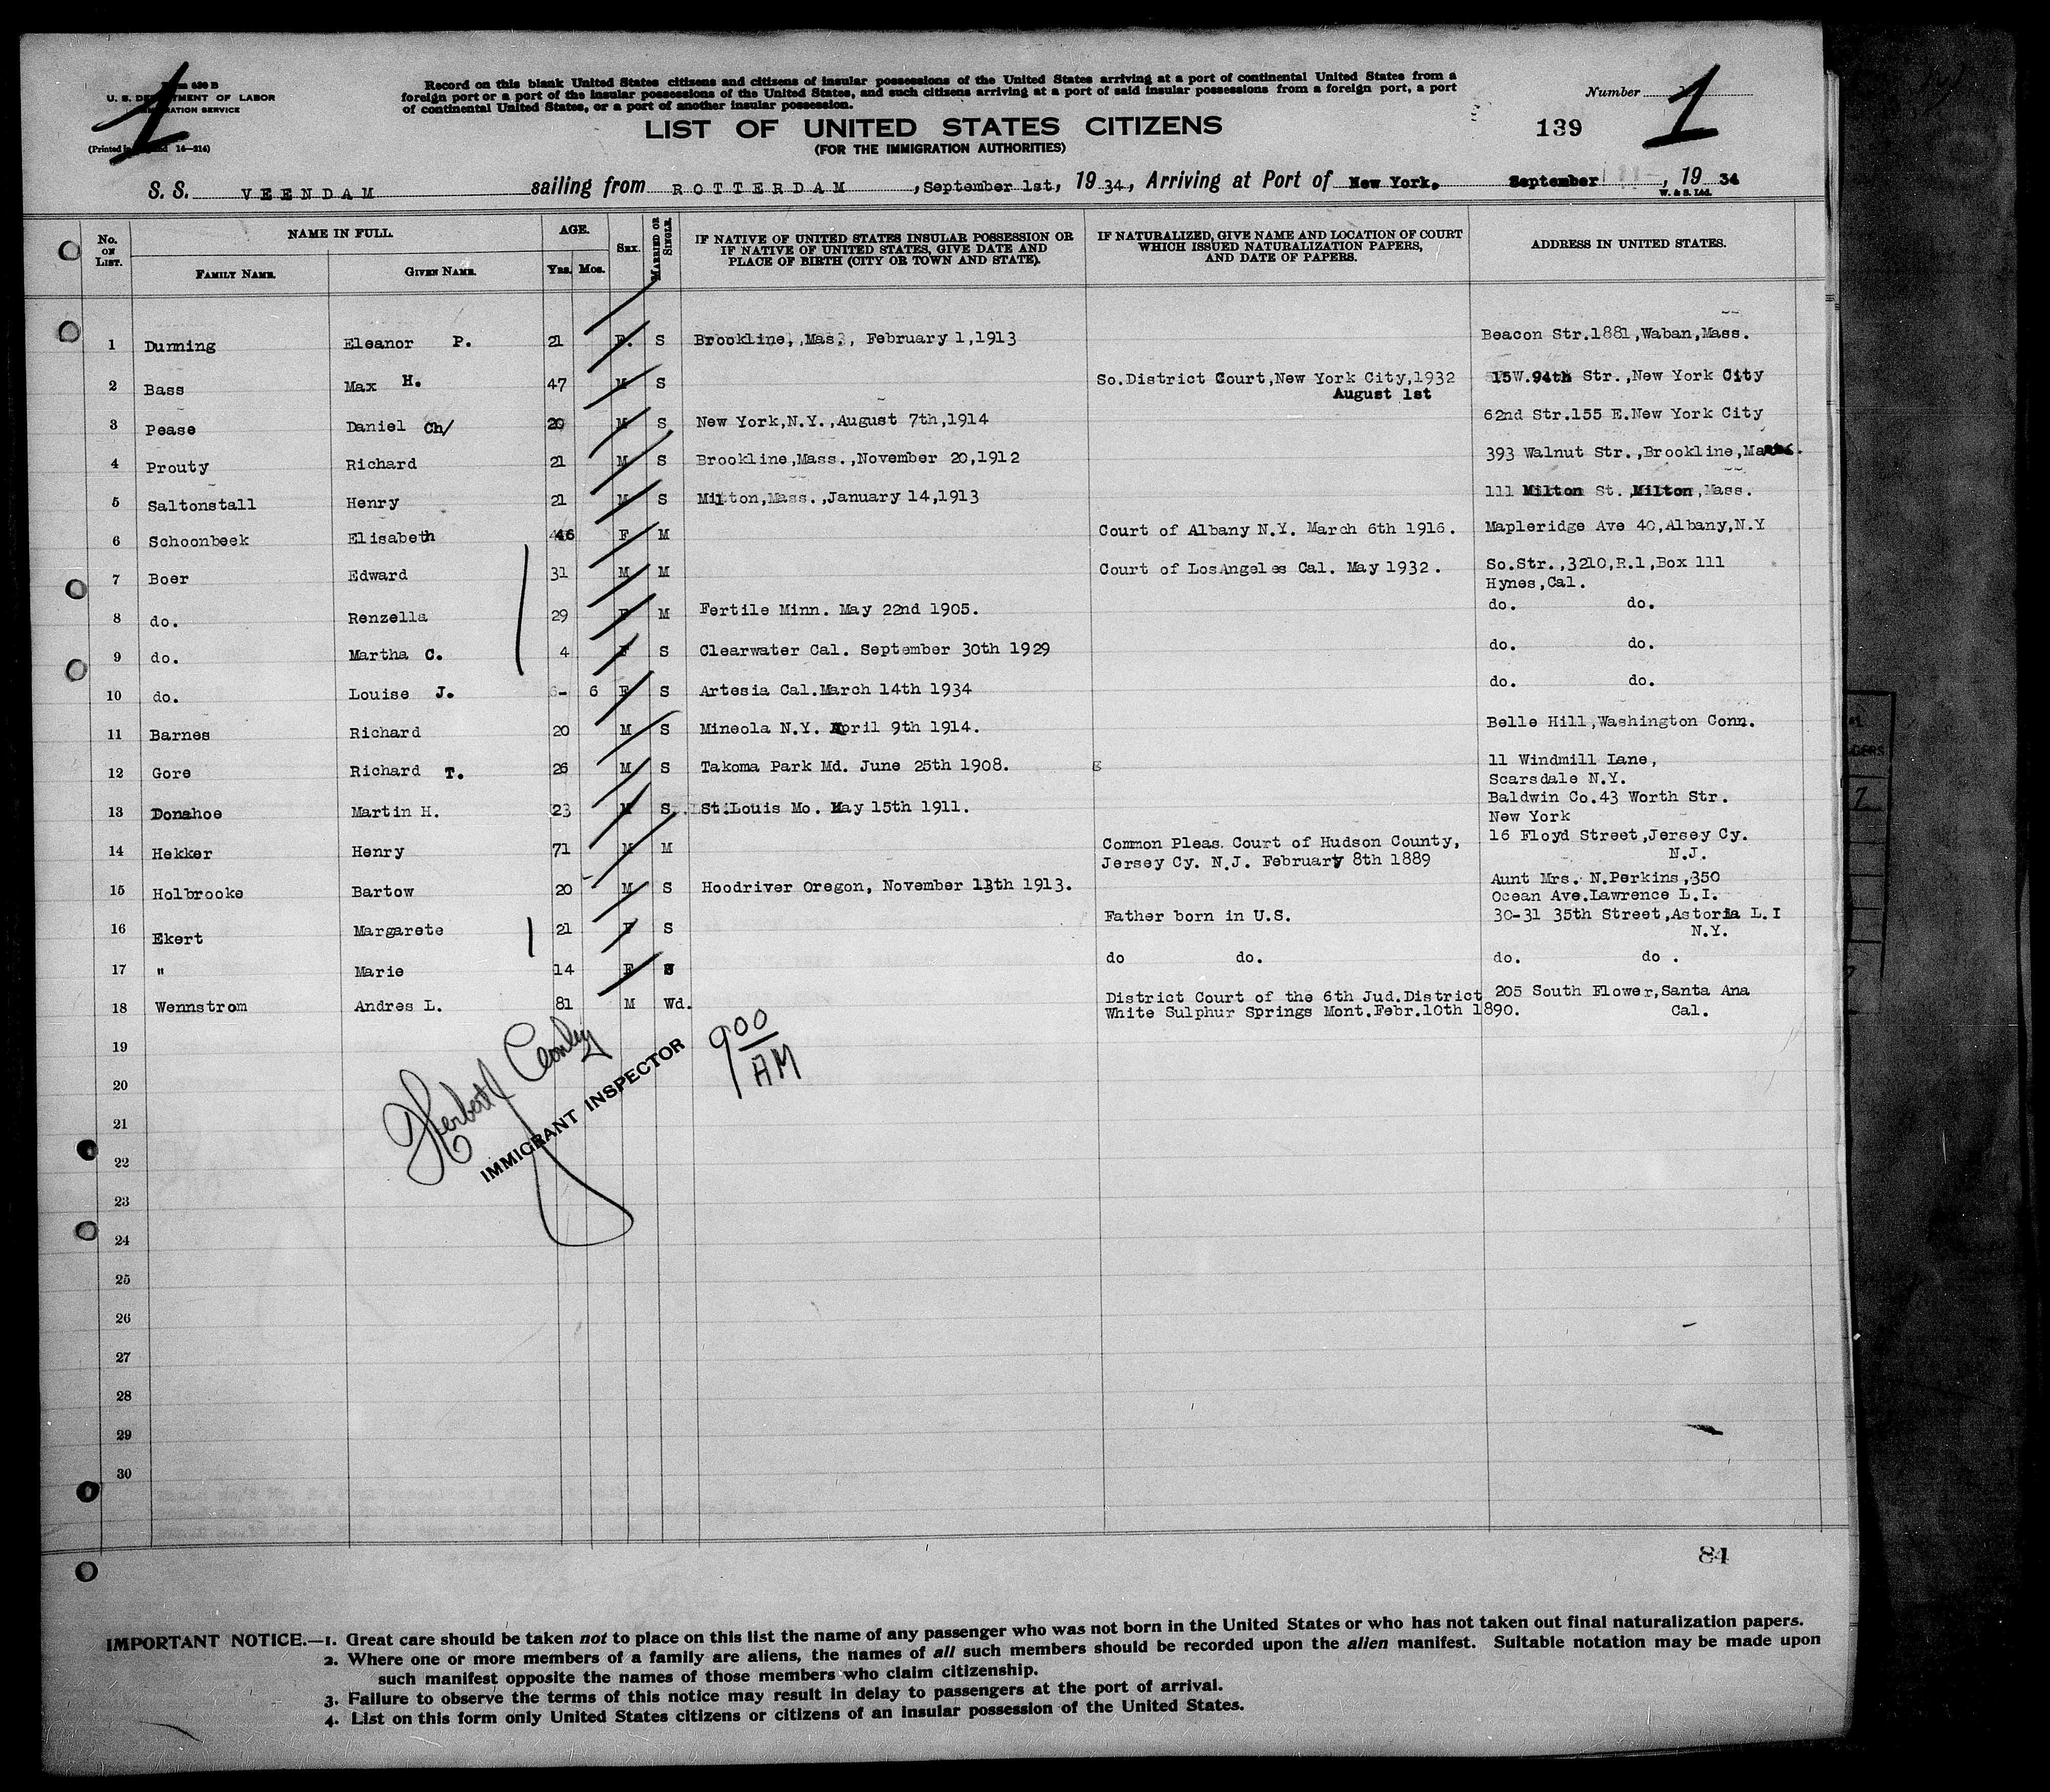 U. S. DEPARTMENT OF LABOR
Record on this blank United States citizens and citizens of insular possessions of the United States arriving at a port of continental United States from a
foreign port or a port of the insular possessions of the United States, and such citizens arriving at a port of said insular possessions from a foreign port, a port
of continental United States, or a port of another insular possession.
Number 1
1
LIST OF UNITED STATES CITIZENS
139
(FOR THE IMMIGRATION AUTHORITIES)
S. S. VEENDAM sailing from ROTTERDAM, September 1st, 19 34, Arriving at Port of New York. September , 19 34
W. & S. Ltd.
No. ON LIST. NAME IN FULL. FAMILY NAME. GIVEN NAME. AGE. YRS. MOS. SEX. MARRIED OR SINGLE. IF NATIVE OF UNITED STATES INSULAR POSSESSION OR IF NATIVE OF UNITED STATES, GIVE DATE AND PLACE OF BIRTH (CITY OR TOWN AND STATE). IF NATURALIZED, GIVE NAME AND LOCATION OF COURT WHICH ISSUED NATURALIZATION PAPERS, AND DATE OF PAPERS. ADDRESS IN UNITED STATES.
1 Durning Eleanor P. 21 F. S Brookline, Mas., February 1,1913 Beacon Str.1881,Waban,Mass.
2 Bass Max H. 47 M S So.District Court,New York City,1932 15W.94th Str.,New York City
August 1st
3 Pease Daniel Ch/ 20 M S New York,N.Y.,August 7th,1914 62nd Str.155 E.New York City
4 Prouty Richard 21 M S Brookline,Mass.,November 20,1912 393 Walnut Str.,Brookline,Mass.
5 Saltonstall Henry 21 M S Milton,Mass.,January 14,1913 111 Milton St. Milton,Mass.
6 Schoonbeek Elisabeth 46 F M Court of Albany N.Y. March 6th 1916. Mapleridge Ave 40,Albany,N.Y
7 Boer Edward 31 M M Court of LosAngeles Cal. May 1932. So.Str.,3210,R.1,Box 111
Hynes,Cal.
8 do. Renzella 29 F M Fertile Minn. May 22nd 1905. do. do.
9 do. Martha C. 4 F S Clearwater Cal. September 30th 1929 do. do.
10 do. Louise J. - 6 F S Artesia Cal.March 14th 1934 do. do.
11 Barnes Richard 20 M S Mineola N.Y. April 9th 1914. Belle Hill,Washington Conn.
12 Gore Richard T. 26 M S Takoma Park Md. June 25th 1908. 11 Windmill Lane,
Scarsdale N.Y.
13 Donahoe Martin H. 23 M S. St.Louis Mo. May 15th 1911. Baldwin Co.43 Worth Str.
New York
14 Hekker Henry 71 M M Common Pleas Court of Hudson County, 16 Floyd Street,Jersey Cy.
Jersey Cy. N.J. February 8th 1889 N.J.
15 Holbrooke Bartow 20 M S Hoodriver Oregon, November 13th 1913. Aunt Mrs. N.Perkins,350
Ocean Ave.Lawrence L.I.
16 Ekert Margarete 21 F S Father born in U.S. 30-31 35th Street,Astoria L.I
N.Y.
17 " Marie 14 F S do do. do. do .
18 Wennstrom Andres L. 81 M Wd. District Court of the 6th Jud.District 205 South Flower,Santa Ana
White Sulphur Springs Mont.Febr.10th 1890. Cal.
19
20
21
22
23
24
25
26
27
28
29
30
Herbert J Conley
IMMIGRANT INSPECTOR
900
AM
84
IMPORTANT NOTICE.—1. Great care should be taken not to place on this list the name of any passenger who was not born in the United States or who has not taken out final naturalization papers.
2. Where one or more members of a family are aliens, the names of all such members should be recorded upon the alien manifest. Suitable notation may be made upon
such manifest opposite the names of those members who claim citizenship.
3. Failure to observe the terms of this notice may result in delay to passengers at the port of arrival.
4. List on this form only United States citizens or citizens of an insular possession of the United States.